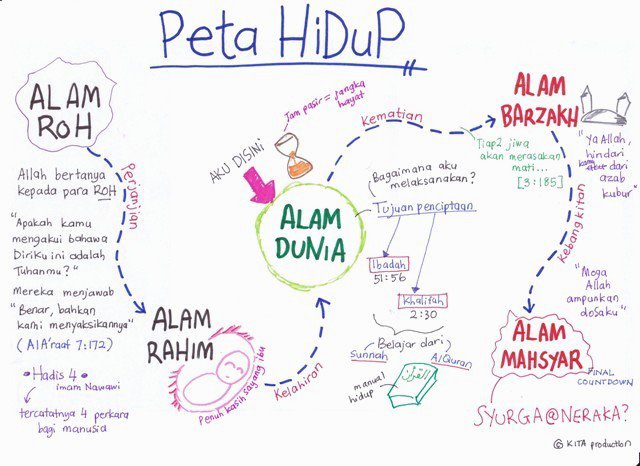 Peta HiDuP
ALAM
ROH
Allah bertanya
kepada para ROH
"Apakah kamu
mengakui bahawa
Diriku ini adalah
Tuhanmu?"
Mereka menjawab
"Benar, bahkan
kami menyaksikannya"
(Al A'raaf 7:172)
• Hadis 4 •
imam Nawawi
tercatatnya 4 perkara
bagi manusia
Perjanjian
ALAM
RAHIM
Penuh kasih sayang ibu
Kelahiran
AKU DISINI
Jam pasir = jangka
hayat
ALAM
DUNIA
Bagaimana aku
melaksanakan?
Tujuan penciptaan
Ibadah
51:56
Khalifah
2:30
Belajar dari
Sunnah
Al Quran
manual
hidup
القرآن
Kematian
Tiap2 jiwa
akan merasakan
mati...
[3:185]
ALAM
BARZAKH
"Ya Allah,
hindari
kami dari
azab
kubur
Kebangkitan
"Moga
Allah
ampunkan
dosaku"
ALAM
MAHSYAR
FINAL
COUNTDOWN
SYURGA@NERAKA?
© KITA production